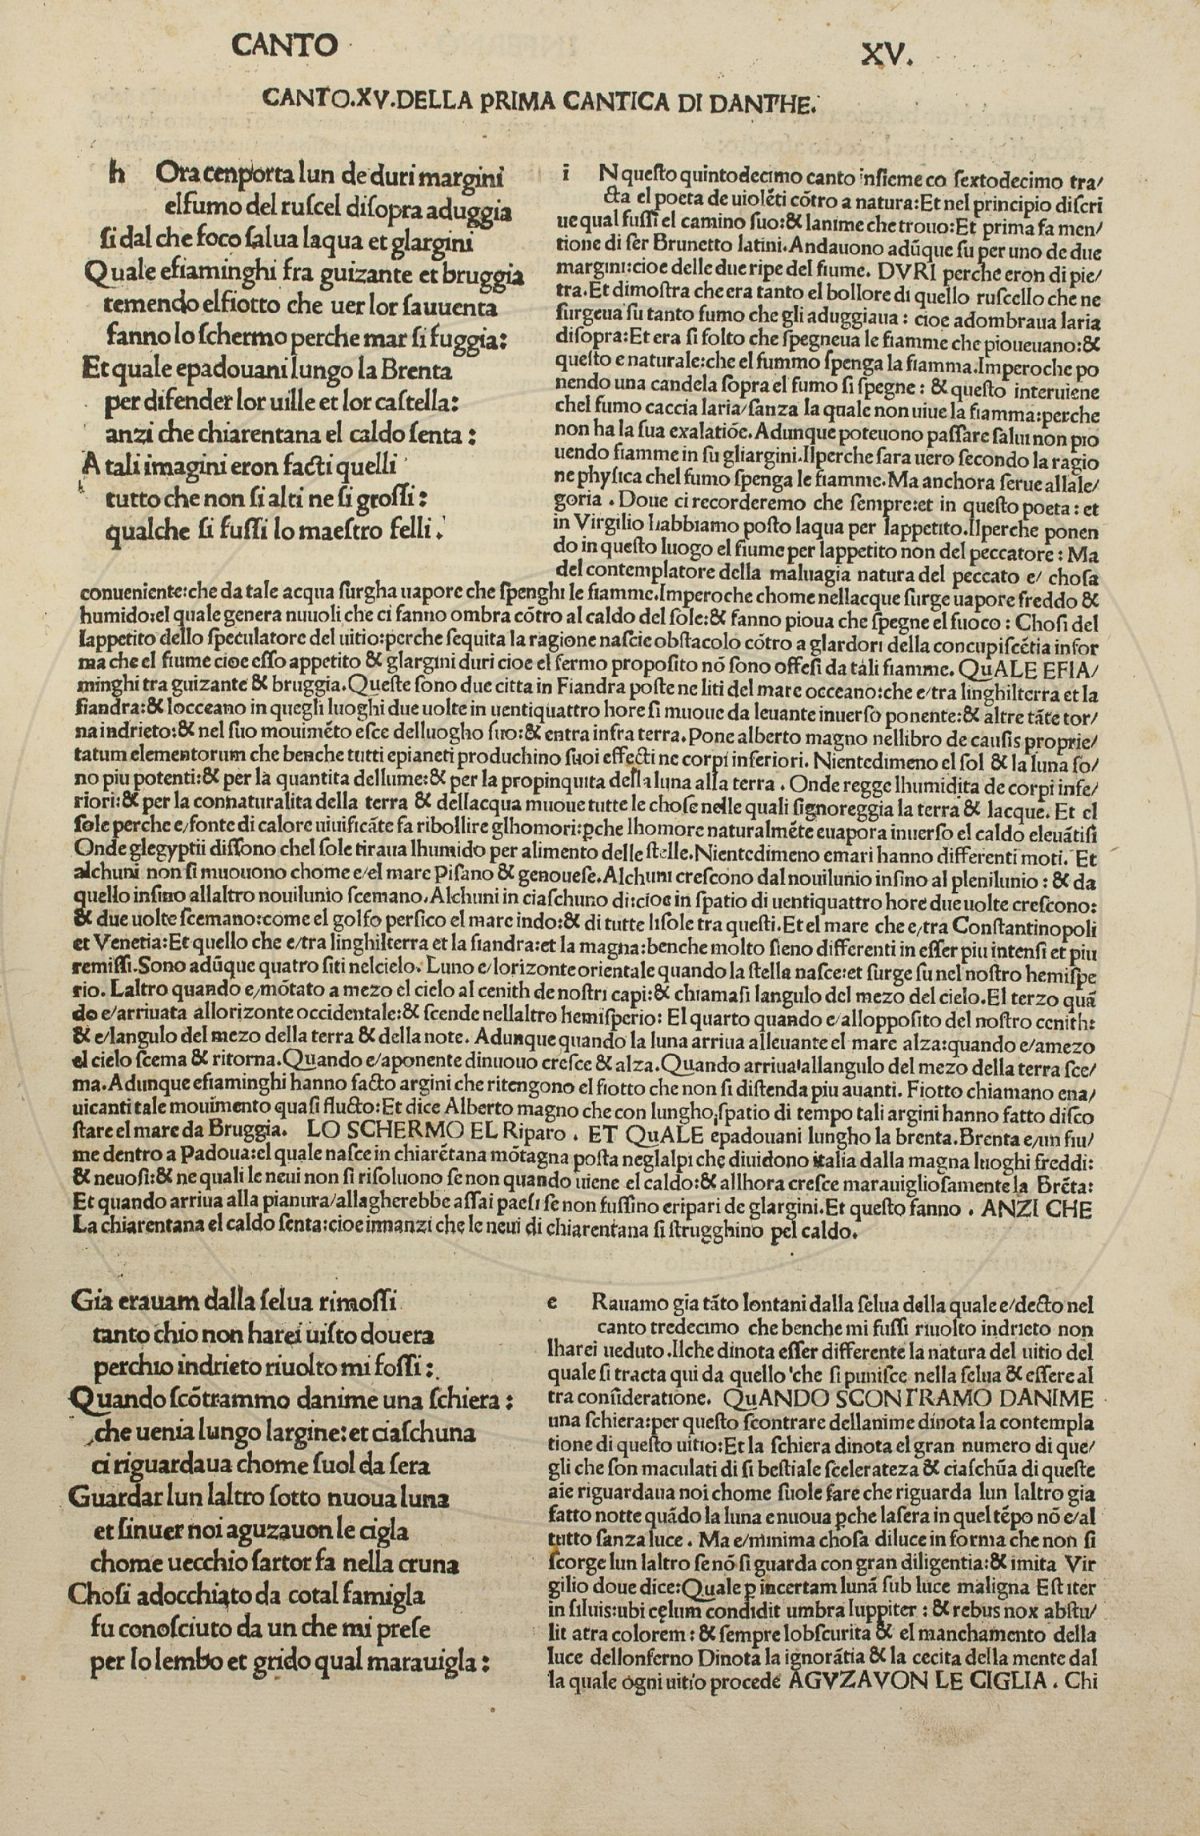 CANTO
XV.
CANTO.XV.DELLA pRIMA CANTICA DI DANTHE.
h Ora cenporta lun de duri margini
elfumo del ruſcel diſopra aduggia
ſi dal che foco ſalua laqua et glargini
Quale efiaminghi fra guizante et bruggia
temendo elfiotto che uer lor ſauuenta
fanno lo ſchermo perche mar ſi fuggia:
Et quale epadouani lungo la Brenta
per difender lor uille et lor caſtella:
anzi che chiarentana el caldo ſenta :
A tali imagini eron facti quelli
tutto che non ſi alti ne ſi groſſi:
qualche ſi fuſſi lo maeſtro felli.
i N queſto quintodecimo canto inſieme co ſextodecimo tra/
cta el poeta de uiolẽti cõtro a natura:Et nel principio diſcri
ue qual fuſſi el camino ſuo:& lanime che trouo:Et prima fa men/
tione di ſer Brunetto latini.Andauono adũque ſu per uno de due
margini:cioe delle due ripe del fiume. DVRI perche eron di pie/
tra.Et dimoſtra che era tanto el bollore di quello ruſcello che ne
ſurgeua ſu tanto fumo che gli aduggiaua : cioe adombraua laria
diſopra:Et era ſi folto che ſpegneua le fiamme che pioueuano:&
queſto e naturale:che el fummo ſpenga la fiamma.Imperoche po
nendo una candela ſopra el fumo ſi ſpegne : & queſto interuiene
chel fumo caccia laria/ſanza la quale non uiue la fiamma:perche
non ha la ſua exalatiõe.Adunque poteuono paſſare ſalui non pio
uendo fiamme in ſu gliargini.Ilperche ſara uero ſecondo la ragio
ne phyſica chel fumo ſpenga le fiamme.Ma anchora ſerue allale/
goria . Doue ci recorderemo che ſempre:et in queſto poeta : et
in Virgilio habbiamo poſto laqua per lappetito.Ilperche ponen
do in queſto luogo el fiume per lappetito non del peccatore : Ma
del contemplatore della maluagia natura del peccato e/ choſa
conueniente:che da tale acqua ſurgha uapore che ſpenghi le fiamme.Imperoche chome nellacque ſurge uapore freddo &
humido:el quale genera nuuoli che ci fanno ombra cõtro al caldo del ſole:& fanno pioua che ſpegne el fuoco : Choſi del
lappetito dello ſpeculatore del uitio:perche ſequita la ragione naſcie obſtacolo cõtro a glardori della concupiſcẽtia infor
ma che el fiume cioe eſſo appetito & glargini duri cioe el fermo propoſito nõ ſono offeſi da tali fiamme. QuALE EFIA/
minghi tra guizante & bruggia.Queſte ſono due citta in Fiandra poſte ne liti del mare occeano:che e/tra linghilterra et la
fiandra:& locceano in quegli luoghi due uolte in uentiquattro hore ſi muoue da leuante inuerſo ponente:& altre tãte tor/
na indrieto:& nel ſuo mouimẽto eſce delluogho ſuo:& entra infra terra.Pone alberto magno nellibro de cauſis proprie/
tatum elementorum che benche tutti epianeti produchino ſuoi effecti ne corpi inferiori. Nientedimeno el ſol & la luna ſo/
no piu potenti:& per la quantita dellume:& per la propinquita della luna alla terra . Onde regge lhumidita de corpi infe/
riori:& per la connaturalita della terra & dellacqua muoue tutte le choſe nelle quali ſignoreggia la terra & lacque. Et el
ſole perche e/fonte di calore uiuificãte fa ribollire glhomori:pche lhomore naturalmẽte euapora inuerſo el caldo eleuãtiſi
Onde glegyptii diſſono chel ſole tiraua lhumido per alimento delle ſtelle.Nientedimeno emari hanno differenti moti. Et
alchuni non ſi muouono chome e/el mare Piſano & genoueſe.Alchuni creſcono dal nouilunio inſino al plenilunio : & da
quello inſino allaltro nouilunio ſcemano.Alchuni in ciaſchuno di:cioe in ſpatio di uentiquattro hore due uolte creſcono:
& due uolte ſcemano:come el golfo perſico el mare indo:& di tutte liſole tra queſti.Et el mare che e/tra Conſtantinopoli
et Venetia:Et quello che e/tra linghilterra et la fiandra:et la magna:benche molto ſieno differenti in eſſer piu intenſi et piu
remiſſi.Sono adũque quatro ſiti nelcielo. Luno e/lorizonte orientale quando la ſtella naſce:et ſurge ſu nel noſtro hemiſpe
rio. Laltro quando e/mõtato a mezo el cielo al cenith de noſtri capi:& chiamaſi langulo del mezo del cielo.El terzo quã
do e/arriuata allorizonte occidentale:& ſcende nellaltro hemiſperio: El quarto quando e/alloppoſito del noſtro cenith:
& e/langulo del mezo della terra & della note. Adunque quando la luna arriua alleuante el mare alza:quando e/amezo
el cielo ſcema & ritorna.Quando e/aponente dinuouo creſce & alza.Quando arriua allangulo del mezo della terra ſce/
ma.Adunque efiaminghi hanno facto argini che ritengono el fiotto che non ſi diſtenda piu auanti. Fiotto chiamano ena/
uicanti tale mouimento quaſi fluċto:Et dice Alberto magno che con lungho ſpatio di tempo tali argini hanno fatto diſco
ſtare el mare da Bruggia. LO SCHERMO EL Riparo . ET QuALE epadouani lungho la brenta.Brenta e/un fiu/
me dentro a Padoua:el quale naſce in chiarẽtana mõtagna poſta neglalpi che diuidono italia dalla magna luoghi freddi:
& neuoſi:& ne quali le neui non ſi riſoluono ſe non quando uiene el caldo:& allhora creſce marauiglioſamente la Brẽta:
Et quando arriua alla pianura/allagherebbe aſſai paeſi ſe non fuſſino eripari de glargini.Et queſto fanno . ANZI CHE
La chiarentana el caldo ſenta:cioe innanzi che le neui di chiarentana ſi ſtrugghino pel caldo.
Gia erauam dalla ſelua rimoſſi
tanto chio non harei uiſto douera
perchio indrieto riuolto mi foſſi:
Quando ſcõtrammo danime una ſchiera :
che uenia lungo largine:et ciaſchuna
ci riguardaua chome ſuol da ſera
Guardar lun laltro ſotto nuoua luna
et ſinuer noi aguzauon le cigla
chome uecchio ſartor fa nella cruna
Choſi adocchiato da cotal famigla
fu conoſciuto da un che mi preſe
per lo lembo et grido qual marauigla :
e Rauamo gia tãto lontani dalla ſelua della quale e/decto nel
canto tredecimo che benche mi fuſſi riuolto indrieto non
lharei ueduto.Ilche dinota eſſer differente la natura del uitio del
quale ſi tracta qui da quello che ſi puniſce nella ſelua & eſſere al
tra conſideratione. QuANDO SCONTRAMO DANIME
una ſchiera:per queſto ſcontrare dellanime dinota la contempla
tione di queſto uitio:Et la ſchiera dinota el gran numero di que/
gli che ſon maculati di ſi beſtiale ſcelerateza & ciaſchũa di queſte
aie riguardaua noi chome ſuole fare che riguarda lun laltro gia
fatto notte quãdo la luna e nuoua pche laſera in quel tẽpo nõ e/al
tutto ſanza luce . Ma e/minima choſa diluce in forma che non ſi
ſcorge lun laltro ſe nõ ſi guarda con gran diligentia:& imita Vir
gilio doue dice:Quale p incertam lunã ſub luce maligna Eſt iter
in ſiluis:ubi cęlum condidit umbra Iuppiter : & rebus nox abſtu/
lit atra colorem : & ſempre lobſcurita & el manchamento della
luce dellonferno Dinota la ignorãtia & la cecita della mente dal
la quale ogni uitio procede AGVZAVON LE CIGLIA . Chi